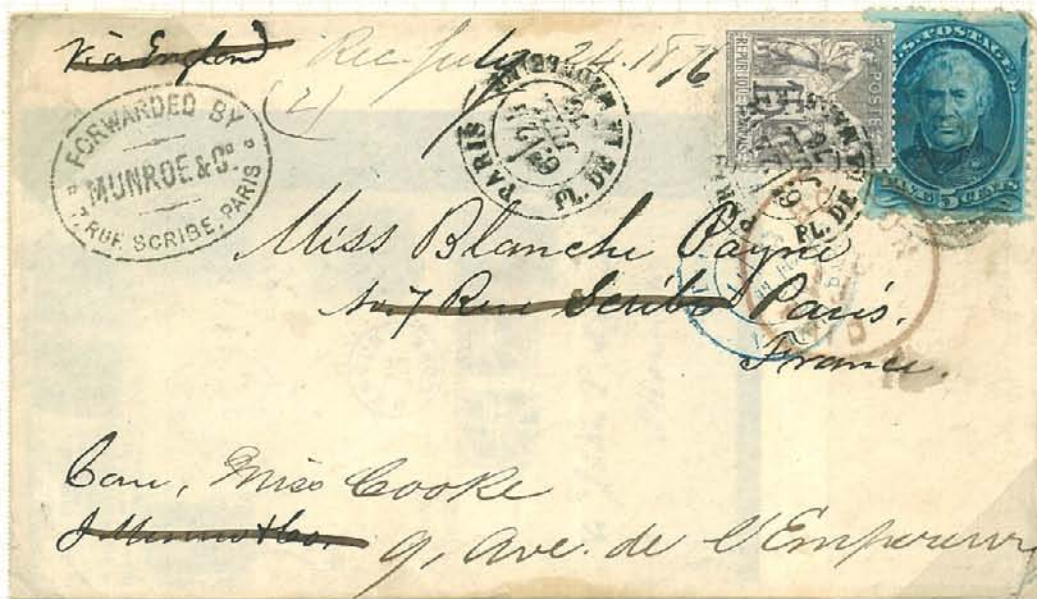 Via England
Rec. July 24. 1876
(2)
FORWARDED BY
MUNROE & Co.
7, RUE SCRIBE, PARIS
PARIS
PL. DE LA MADELEINE
REPUBLIQUE FRANCAISE
POSTES
U.S. POSTAGE
5 CENTS
PL. DE
Miss Blanche Payne
No. 7 Rue Scribe Paris.
France.
Care, Miss Cooke
J. Munroe & Co. 9, Ave. de l'Empereur